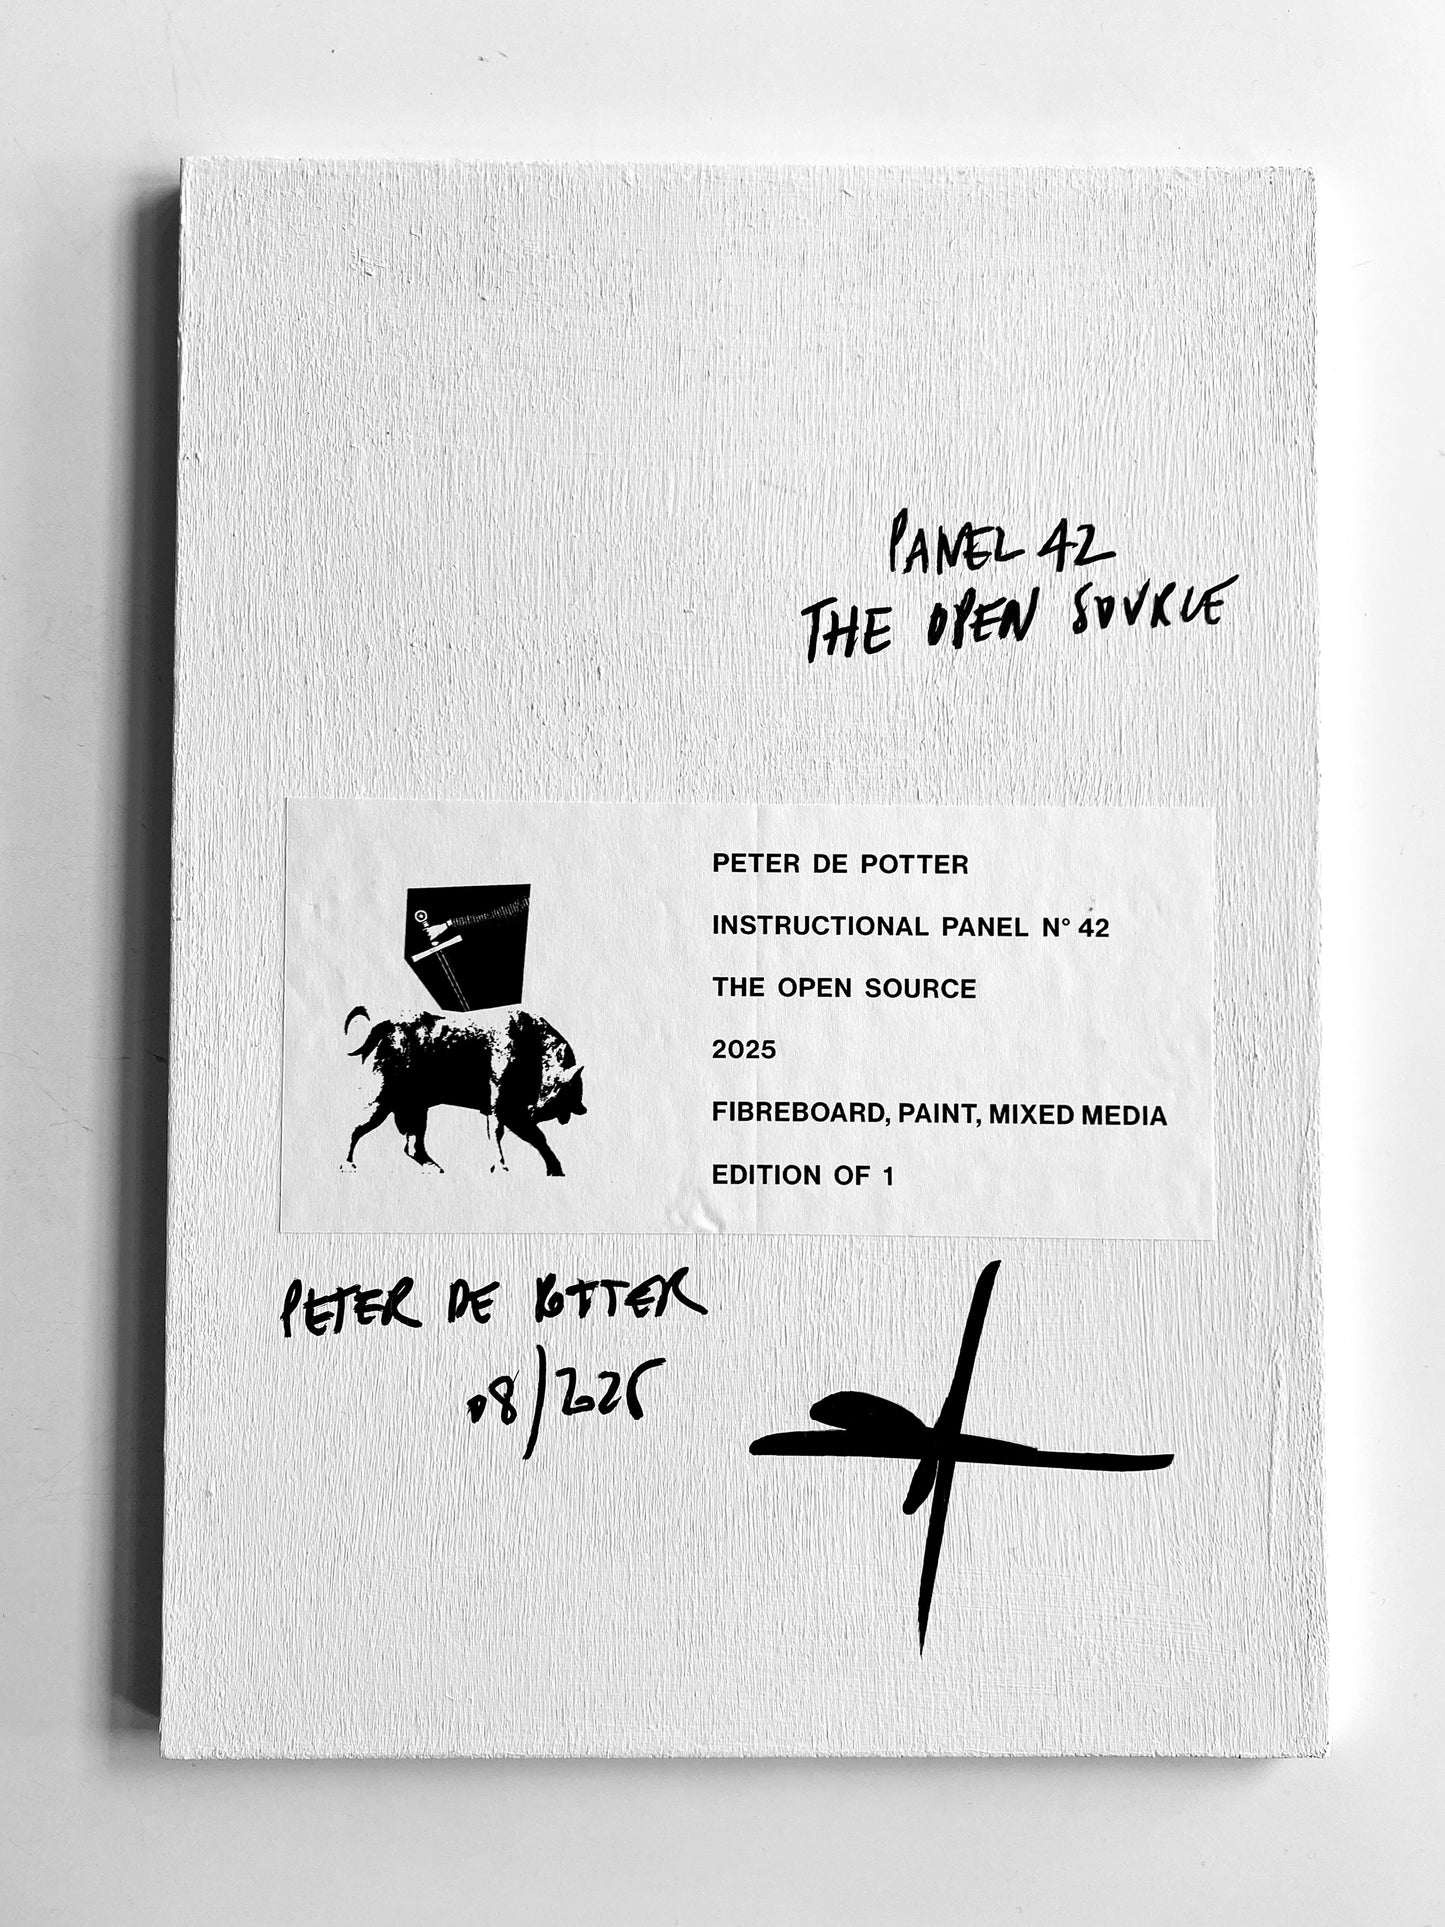 PANEL 42
THE OPEN SOURCE
PETER DE POTTER
INSTRUCTIONAL PANEL N° 42
THE OPEN SOURCE
2025
FIBREBOARD, PAINT, MIXED MEDIA
EDITION OF 1
PETER DE POTTER
08/2025